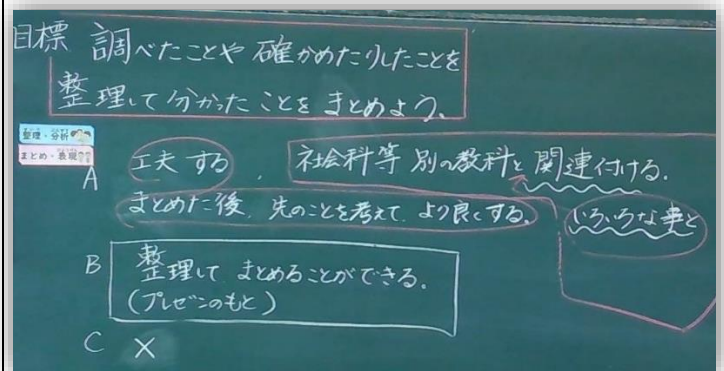 目標 調べたことや確かめたりしたことを
整理して分かったことをまとめよう。
整理・分析
まとめ・表現
A 工夫する、社会科等 別の教科と関連付ける。
まとめた後、先のことを考えて、より良くする。 いろいろな事と
B 整理して まとめることができる。
(プレゼンのもと)
C ×